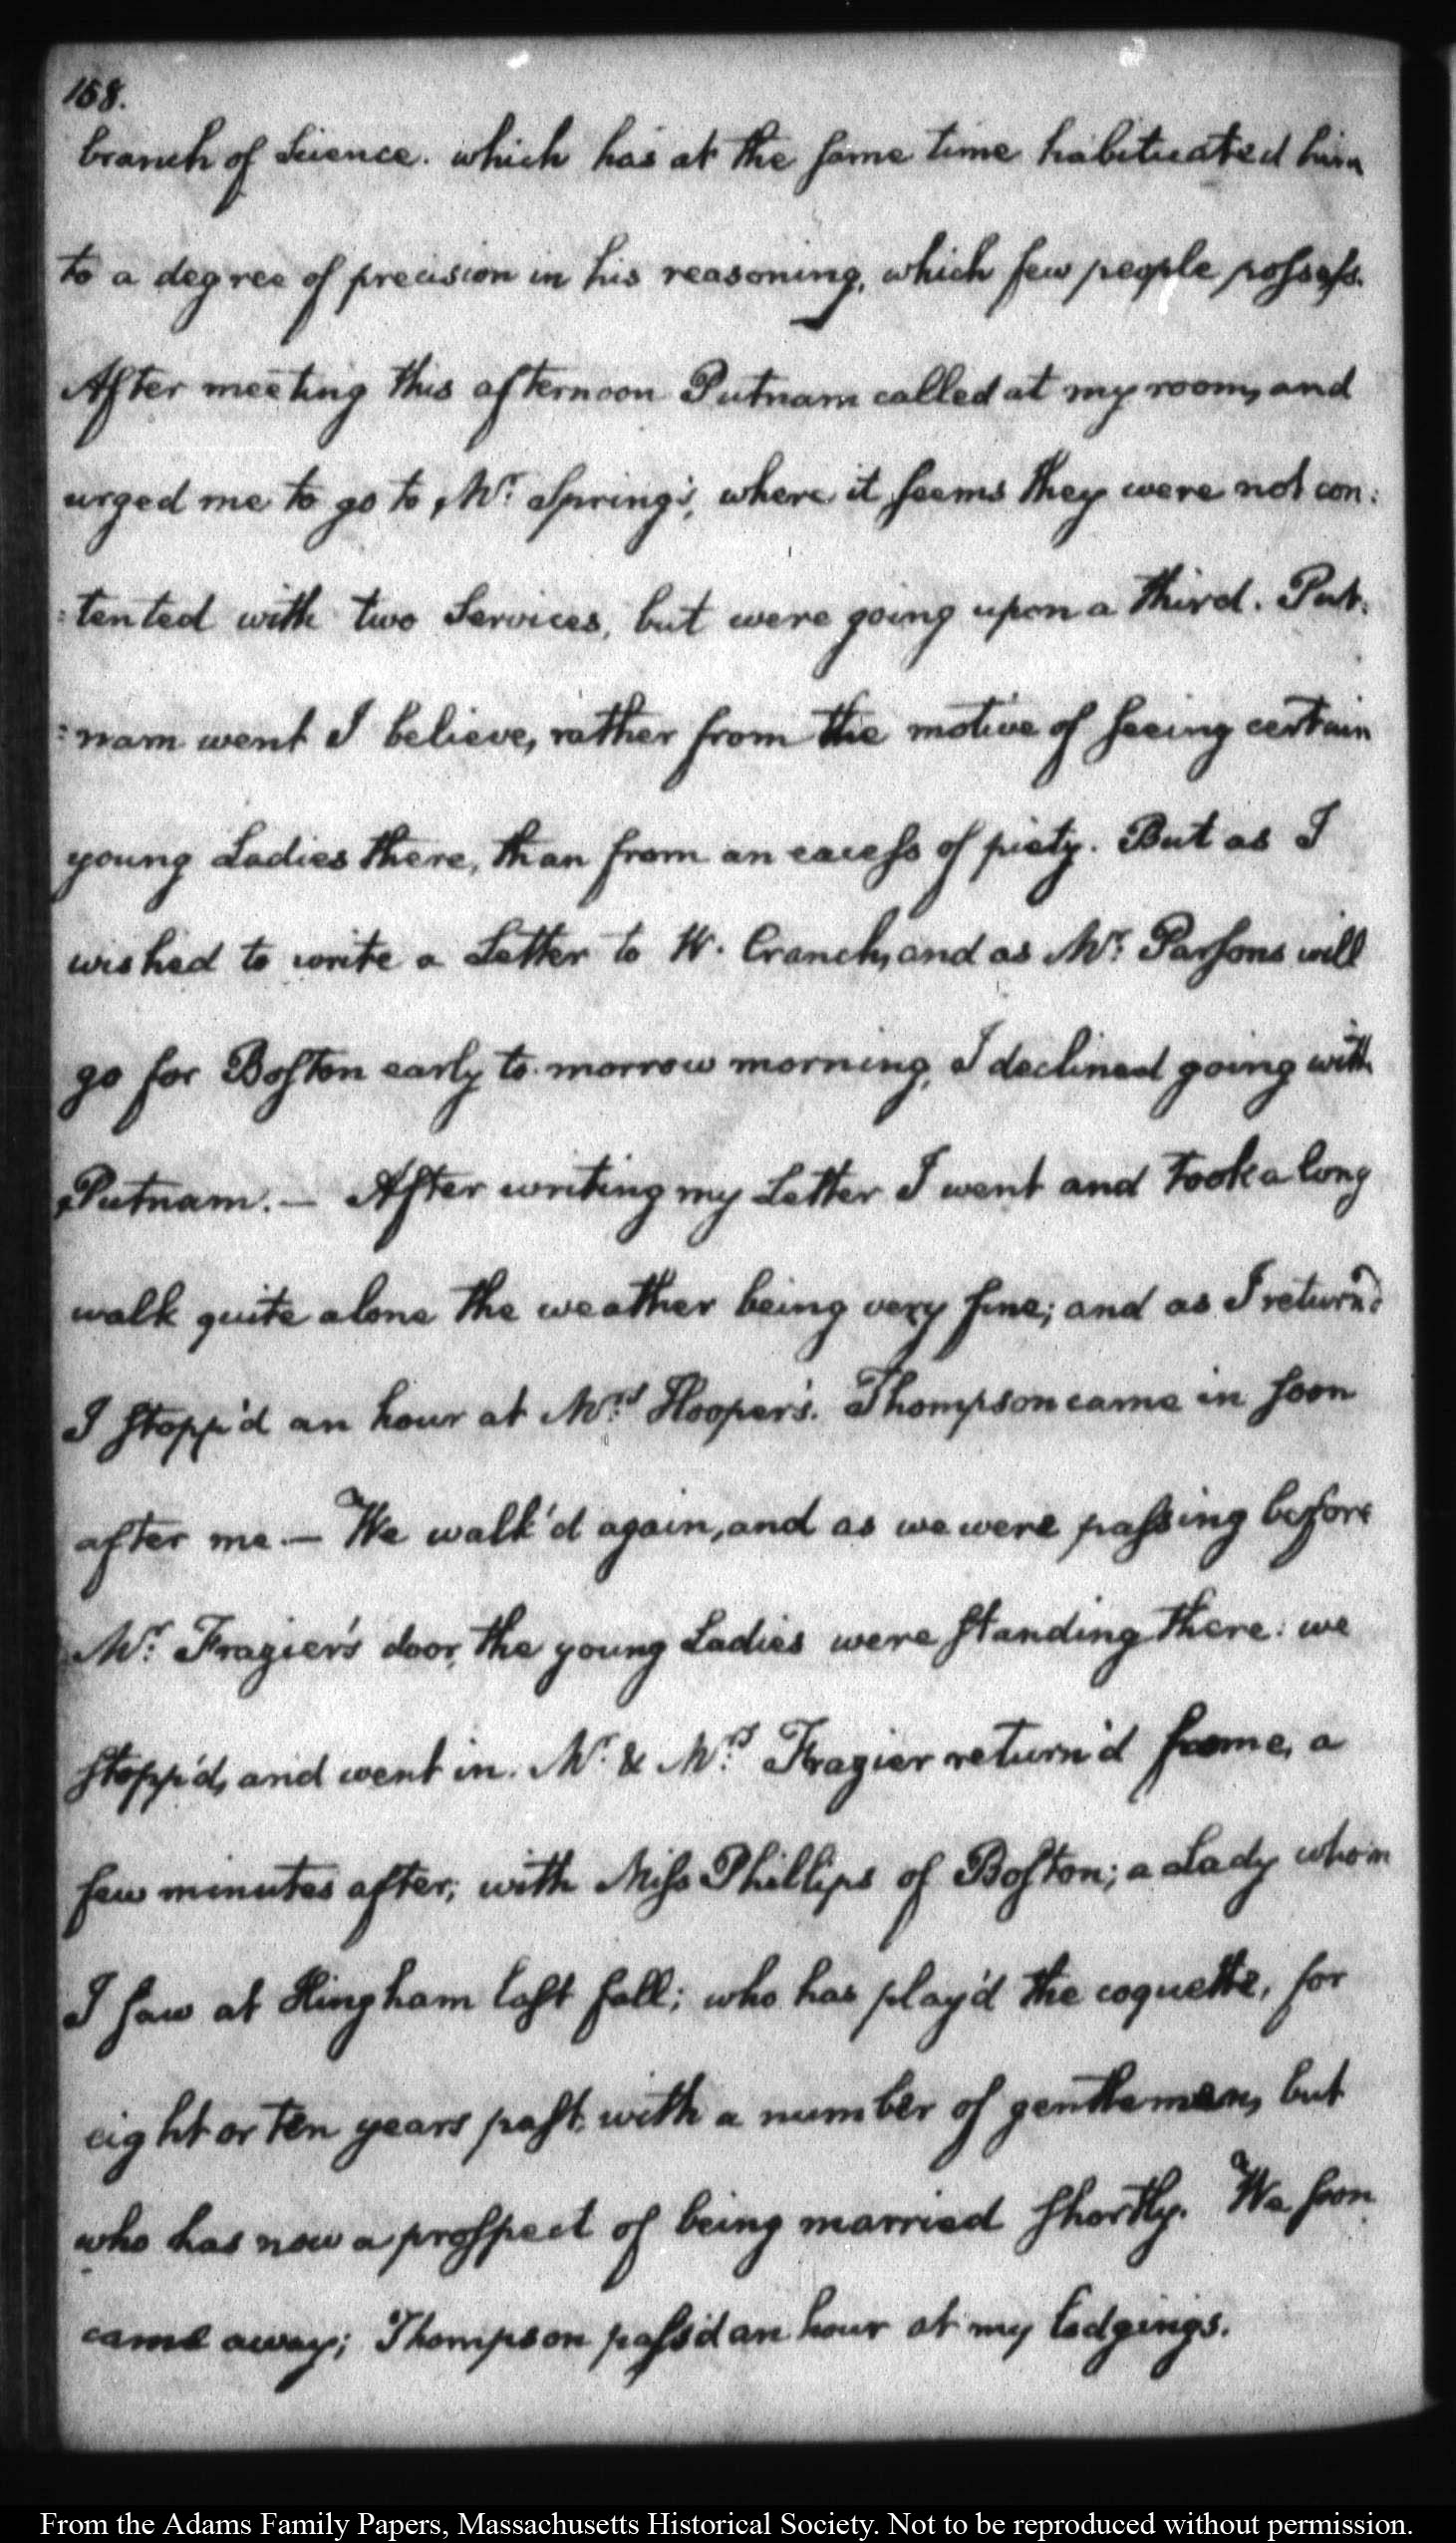 168.
branch of Science. which has at the same time habituated him
to a degree of precision in his reasoning, which few people possess.
After meeting this afternoon Putnam called at my room, and
urged me to go to Mr. Spring's, where it seems they were not con:
:tented with two Services, but were going upon a third. Put:
:nam went I believe, rather from the motive of seeing certain
young Ladies there, than from an excess of piety. But as I
wished to write a Letter to W. Cranch, and as Mr. Parsons will
go for Boston early to-morrow morning, I declined going with
Putnam. — After writing my Letter I went and took a long
walk quite alone the weather being very fine; and as I return'd
I stopp'd an hour at Mrs. Hooper's. Thompson came in soon
after me. — We walk'd again, and as we were passing before
Mr. Frazier's door, the young Ladies were standing there: we
stopp'd, and went in. Mr. & Mrs. Frazier return'd home, a
few minutes after; with Miss Phillips of Boston; a Lady whom
I saw at Hingham last fall; who has play'd the coquette, for
eight or ten years past, with a number of gentlemen, but
who has now a prospect of being married shortly. We soon
came away; Thompson pass'd an hour at my lodgings.
From the Adams Family Papers, Massachusetts Historical Society. Not to be reproduced without permission.